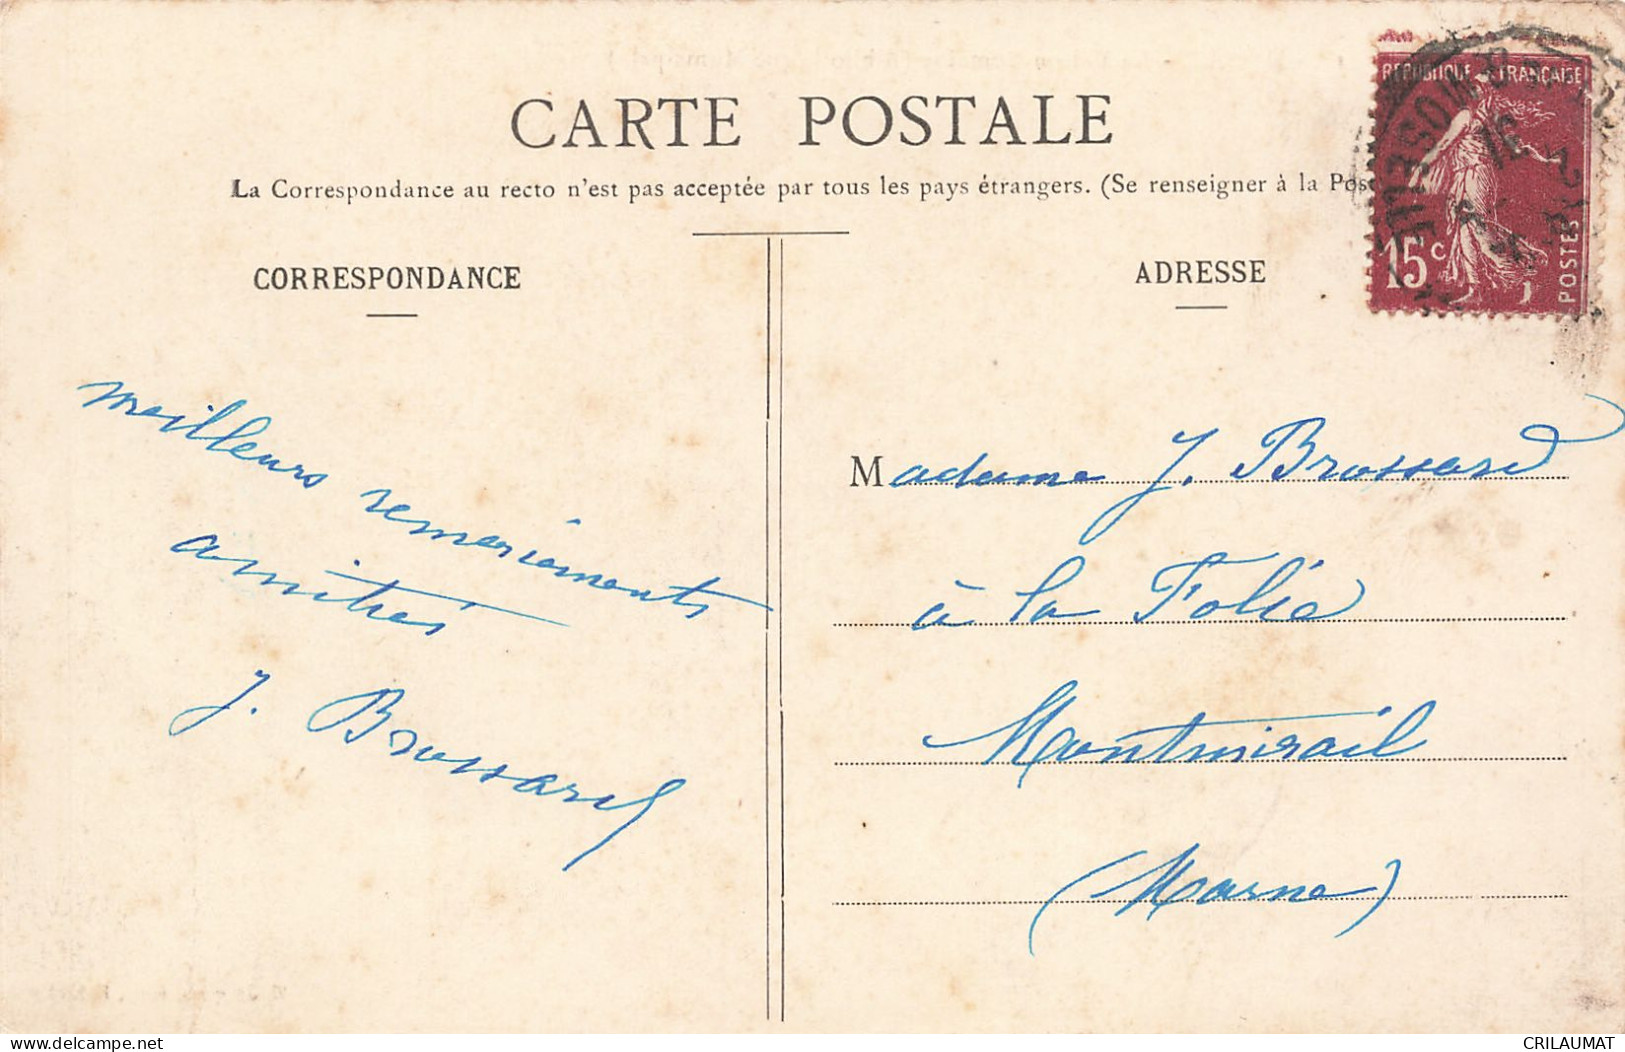 CARTE POSTALE
La Correspondance au recto n'est pas acceptée par tous les pays étrangers. (Se renseigner à la Pos
CORRESPONDANCE
meilleurs remerciements
amitiés
J. Brossard
ADRESSE
Madame J. Brossard
à la Folie
Montmirail
(Marne)
REPUBLIQUE FRANÇAISE
15c
POSTES
delcampe.net
CRILAUMAT